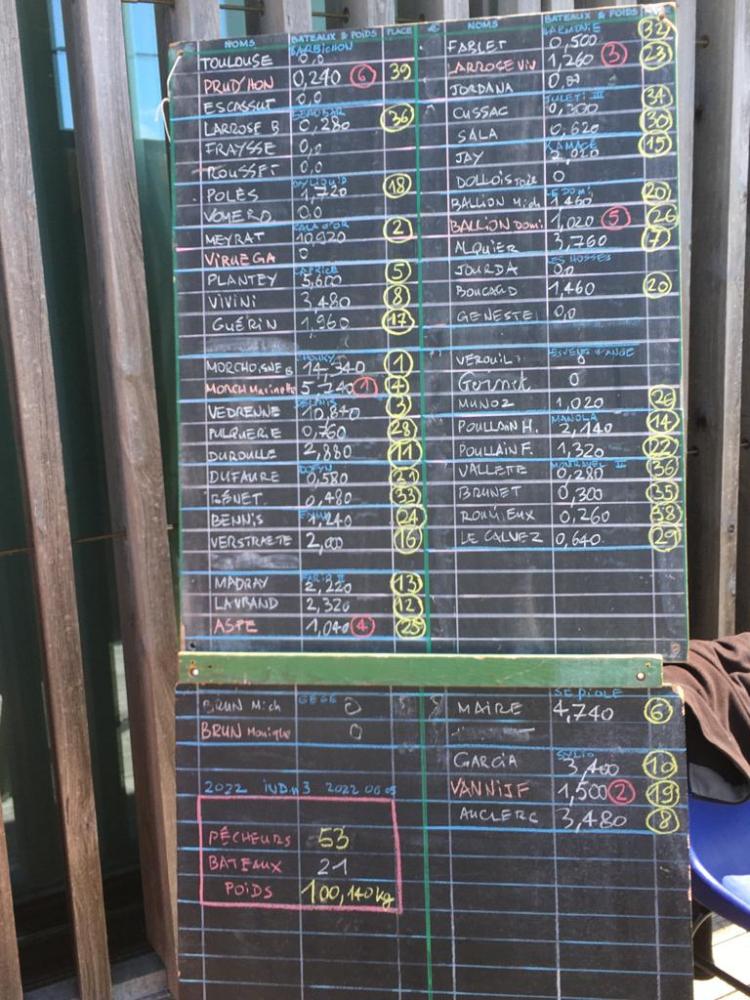 NOMS BATEAUX & POIDS PLACE
BARBICHON
TOULOUSE 0,0
PRUD'HON 0,240 6 39
ESCASSUT 0,0
LARROSE B 0,280 36
FRAYSSE 0,0
ROUSSET 0,0
POLÈS 1,720 18
VOMERO 0,0
MEYRAT 10,920 2
VIRUEGA 0
PLANTEY 5,600 5
VIVINI 3,480 8
GUÉRIN 1,960 17
MORCHOISNE B 14,340 1
MORCH Marinette 5,740 1 4
VEDRENNE 10,840 3
PULQUERIE 0,760 28
DUROULLE 2,880 11
DUFAURE 0,580
BÉNET 0,480 33
BENNIS 1,240 24
VERSTRAETE 2,000 16
MADRAY 2,220 13
LAVRAND 2,320 12
ASPE 1,040 4 25
NOMS BATEAUX & POIDS
FABLET 0,500 32
LARROSE VIV 1,260 3 23
JORDANA
JULETI III
CUSSAC 0,300 34
SALA 0,620 30
JAY 2,020 15
DOLLOIS 0
LE DOMI
BALLION Mich 1,460 20
BALLION Domi 1,020 5 26
ALQUIER 3,760 7
JOURDA 0,0
BOUCAUD 1,460 20
GENESTE 0,0
VEROUIL 0
0
MUNOZ 1,020 26
MANOLA
POULLAIN H. 2,140 14
POULLAIN F. 1,320 22
VALLETTE 0,280 36
BRUNET 0,300 35
ROUI EUX 0,260 38
LE CALVEZ 0,640 29
GÉGÉ
BRUN Mich 0
BRUN Monique 0
2022 IND. n 3 2022 06 05
PÊCHEURS 53
BATEAUX 21
POIDS 100,140 kg
SEPIOLE
MAIRE 4,740 6
GARCIA 3,400 10
VANNIJF 1,500 2 19
AUCLERC 3,480 8